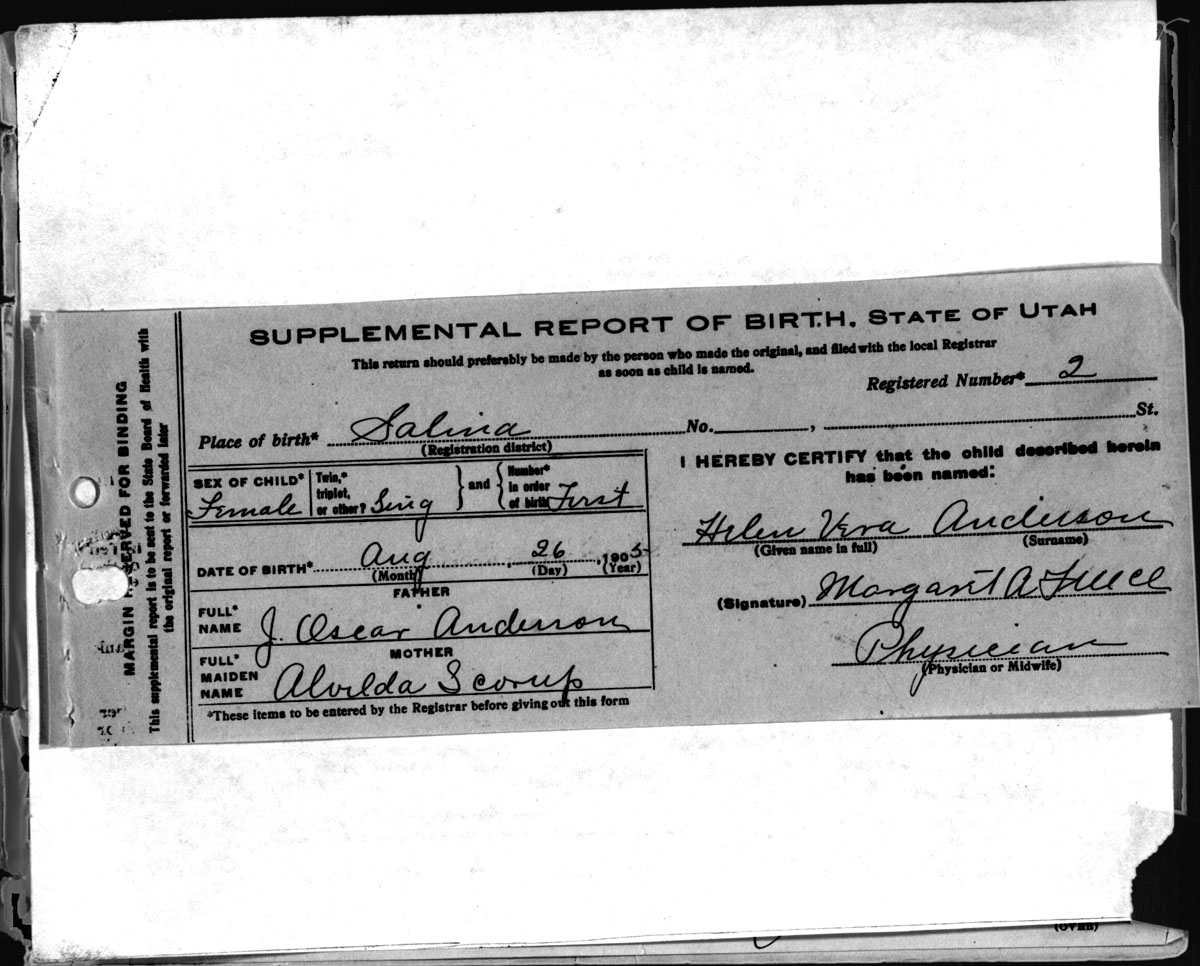 SUPPLEMENTAL REPORT OF BIRTH. STATE OF UTAH
This return should preferably be made by the person who made the original, and filed with the local Registrar
as soon as child is named.
Registered Number* 2
Place of birth* Salina No. , St.
(Registration district)
SEX OF CHILD* Female
Twin,* triplet, or other? Sing } and { Number* in order of birth First
DATE OF BIRTH* Aug , 26 , 1905
(Month) (Day) (Year)
FATHER
FULL* NAME J. Oscar Anderson
MOTHER
FULL* MAIDEN NAME Alvilda Scorup
*These items to be entered by the Registrar before giving out this form
I HEREBY CERTIFY that the child described herein
has been named:
Helen Vera Anderson
(Given name in full) (Surname)
(Signature) Margaret A
Physician
(Physician or Midwife)
MARGIN RESERVED FOR BINDING
This supplemental report is to be sent to the State Board of Health with
the original report or forwarded later
(OVER)